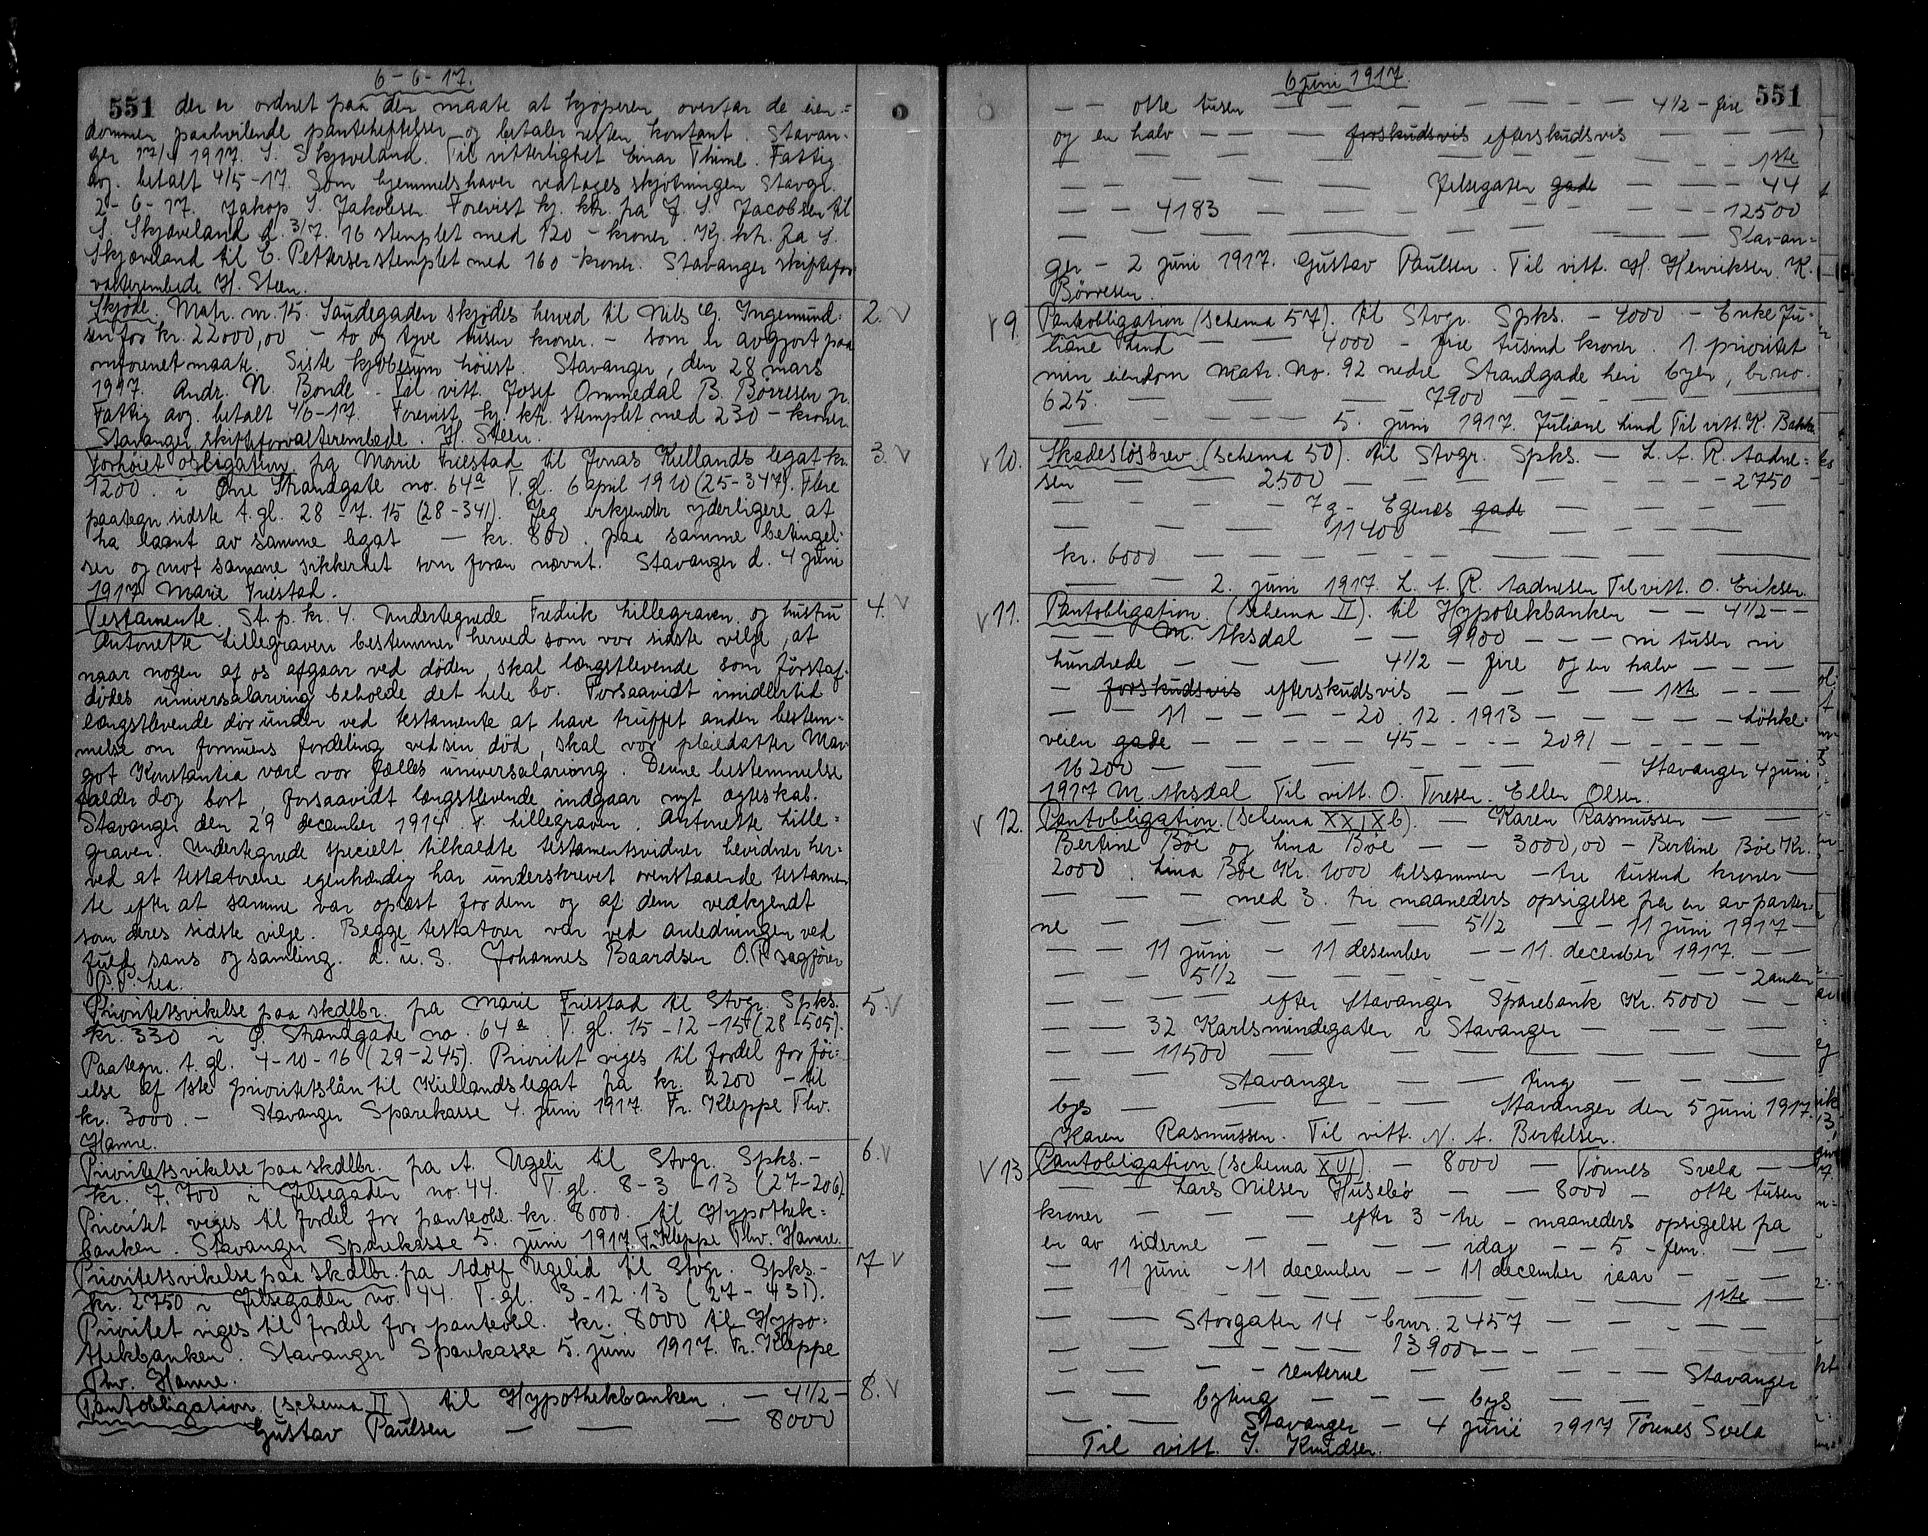 6-6-17.
551 der er ordnet paa den maate at kjøperen overtar de eien-
dommen paahvilende pantehæftelser og betaler resten kontant. Stavan-
ger 17/4 1917. S. Skjæveland. Til vitterlighet Einar Thime. Fattig
avg. betalt 4/5-17. Som hjemmelshaver vedtages skjøtningen Stavgr.
2-6-17. Jakop S. Jakobsen. Forevist kj. ktr. fra J. S. Jacobsen til
S. Skjæveland d. 3/7. 16 stemplet med 120 - kroner. Kj. ktr. fra S.
Skjæveland til E. Pettersen stemplet med 160 kroner. Stavanger skiftefor-
valterembede H. Steen.
Skjøde. Matr. nr. 15. Saudegaden skjødes herved til Nils G. Ingemund- 2.
sen for kr. 22000,00 - to og tyve tusen kroner. - som er avgjort paa
omforenet maate. Siste kjøbesum høiest. Stavanger, den 28 mars
1917. Andr. N. Bonde. Til vitt. Josef Ommedal B. Børresen jr.
Fattig avg. betalt 4/6-17. Forevist kj. ktr. stemplet med 230 - kroner
Stavanger skifteforvalterembede. H. Steen.
Forhøiet obligation fra Marie Friestad til Jonas Kiellands legat kr. 3.
1200. i Øvre Strandgate no. 64a T. gl. 6 april 1910 (25-347). Flere
paategn. sidste t. gl. 28-7.15 (28-341). Jeg erkjender yderligere at
ha laant av samme legat - kr. 800. paa samme betingel-
ser og mot samme sikkerhet som foran nævnt. Stavanger d. 4 juni
1917 Marie Friestad.
Testamente. St. p. kr. 4. Undertegnede Fredrik Lillegraven og hustru 4.
Antonette Lillegraven bestemmer herved som vor sidste vilje, at
naar nogen af os afgaar ved døden skal længstlevende som førstaf-
dødes universalarving beholde det hele bo. Forsaavidt imidlertid
længstlevende dør uden ved testamente at have truffet anden bestem-
melse om formuens fordeling ved sin død, skal vor pleiedatter Mar-
got Konstantia være vor fælles universalarving. Denne bestemmelse
falder dog bort, forsaavidt længstlevende indgaar nyt ægteskab.
Stavanger den 29 december 1914. F. Lillegraven. Antonette Lille-
graven. Undertegnede specielt tilkaldte testamentsvidner bevidner her-
ved at testatorene egenhændig har underskrevet ovenstaaende testamen-
te efter at samme var oplæst for dem og af dem vedkjendt
som deres sidste vilje. Begge testatorer var ved anledningen ved
fuld sans og samling. d. u. s. Johannes Baardsen O.R. sagfører
P. P. Lea.
Prioritetsvikelse paa skdlbr. fra Marie Friestad til Stvgr. Spks. 5.
kr. 330 i Ø. Strandgade no. 64a. T. gl. 15-12-15 (28-505).
Paategn. t. gl. 4-10-16 (29-245). Prioritet viges til fordel for føi-
else af 1ste prioritetslån til Kiellandslegat fra kr. 2200 - til
kr. 3000. - Stavanger Sparekasse 4. juni 1917. Fr. Kleppe Thv.
Hamre.
Prioritetsvikelse paa skdlbr. fra A. Ugelid til Stvgr. Spks.- 6.
kr. 7.700 i Jelsegaden no. 44. T. gl. 8-3-13 (27-206)
Prioritet viges til fordel for panteobl. kr. 8000. til Hypothek-
banken. Stavanger Sparekasse 5. juni 1917. Fr. Kleppe Thv. Hamre.
Prioritetsvikelse paa skdlbr. fra Adolf Ugelid til Stvgr. Spks.- 7
kr. 2750 i Jelsegaden no. 44. T. gl. 3-12.13 (27-431).
Prioritet viges til fordel for panteobl. kr. 8000 til Hypo-
thekbanken. Stavanger Sparekasse 5. juni 1917. Fr. Kleppe
Thv. Hamre.
Pantobligation. (Schema II) til Hypothekbanken. - 4 1/2 - 8.
Gustav Paulsen - - - 8000
6 juni 1917.
- - otte tusen - - - 4 1/2 - fire 551
og en halv - - - forskudsvis efterskudsvis - - -
- - - 1ste
- - - Jelsegaten gade - - - 44
- - 4183 - - - 12500
- - - Stavan-
ger - 2 juni 1917. Gustav Paulsen. Til vitt. H. Henriksen. K.
Børresen.
9. Pantobligation (schema 57). til Stvgr. Spks. - 4000 - Enke Ju-
liane Lund - - 4000 - fire tusend kroner. 1. prioritet
min eiendom Matr. No. 92 nedre Strandgade heri byen, br.no.
625. - - - 7900 - - -
- - - 5. juni 1917. Juliane Lund Til vitt. K. Bakke
10. Skadesløsbrev. (Schema 50). til Stvgr. Spks. - L. A. R. Aadne-
sen - - 2500 - - - 2750
- - - 7g - Egenes gade - - -
- - - 11400 - - -
kr. 6000 - - -
- - - 2. juni 1917. L. A. R Aadnesen Til vitt. O. Eriksen.
11. Pantobligation (schema II). til Hypotekbanken - - 4 1/2 - -
- - M. Aksdal - - 9900 - - - ni tusen ni
hundrede - - - 4 1/2 - fire og en halv - - -
- forskudsvis efterskudsvis - - - 1ste - - -
- - 11 - - - 20.12.1913 - - - Løkke-
veien gade - - - 45 - - - 2091 - - -
16200 - - - Stavanger 4 juni
1917 M. Aksdal Til vitt. O. Toresen. Ellen Olsen.
12. Pantobligation. (Schema XXIX b). - Karen Rasmussen - -
Bertine Bøe og Lina Bøe - - 3000,00 - Bertine Bøe Kr.
2000. Lina Bøe Kr. 1000 tilsammen - tre tusend kroner -
- - - med 3. tri maaneders opsigelse fra en av parter-
ne - - - 5 1/2 - - 11 juni 1917 -
- - 11 juni - 11 desember - - 11. december 1917. - -
- - 5 1/2 - - - 2 anden
- - - efter Stavanger Sparebank Kr. 5000 - -
- - 32 Karlsmindegaten i Stavanger - - -
- - 11500 - - -
- - - Stavanger - - ting - -
bys - - - Stavanger den 5 juni 1917.
Karen Rasmussen. Til vitt. N. A. Bertelsen.
13 Pantobligation (schema XVI). - 8000 - Tønnes Svela - -
- - Lars Nilsen Husebø - - 8000 - otte tusen
kroner - - - efter 3 - tre - maaneders opsigelse fra
en av siderne - - - idag - - 5 - fem. - -
- 11 juni - 11 december - - 11 december iaar - -
- - - 1ste -
- - Storgaten 14 - brnr. 2457 - - -
- - - 13900 - - -
- - - renterne - - - Stavanger
- - byting - - - bys - -
- - Stavanger - 4 juni 1917 Tønnes Svela
Til vitt. J. Knudsen.